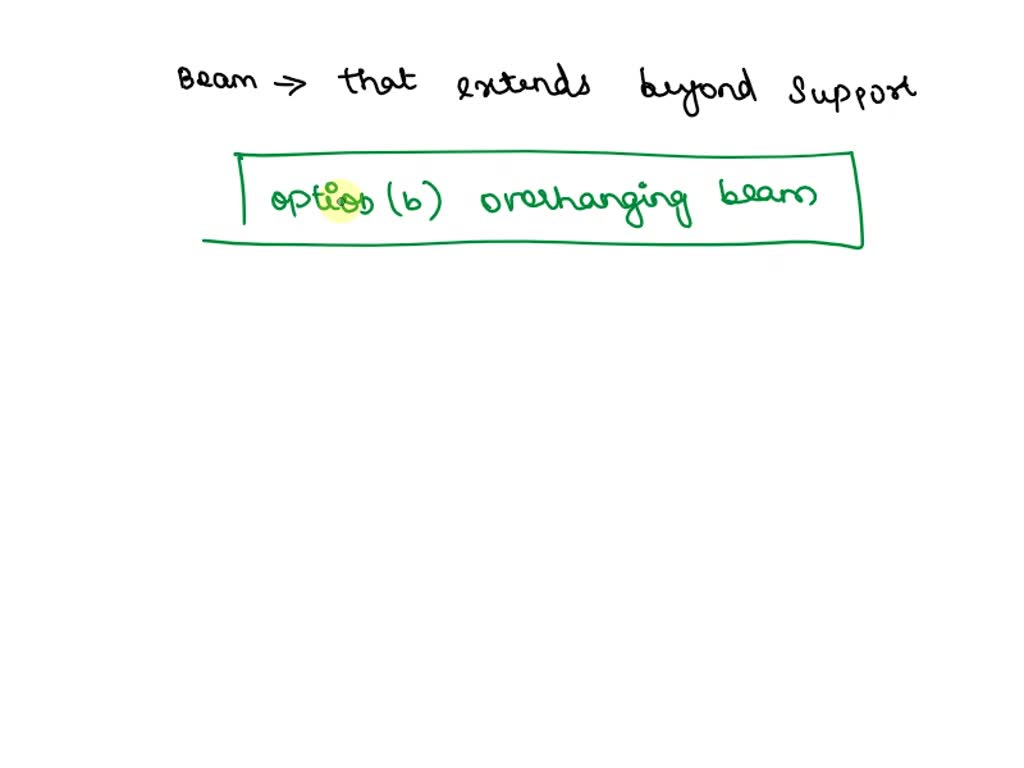 Beam → that extends beyond support
option (b) overhanging beam